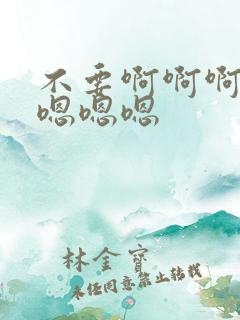 不要啊啊啊
嗯嗯嗯
林金宝
未经同意禁止转载